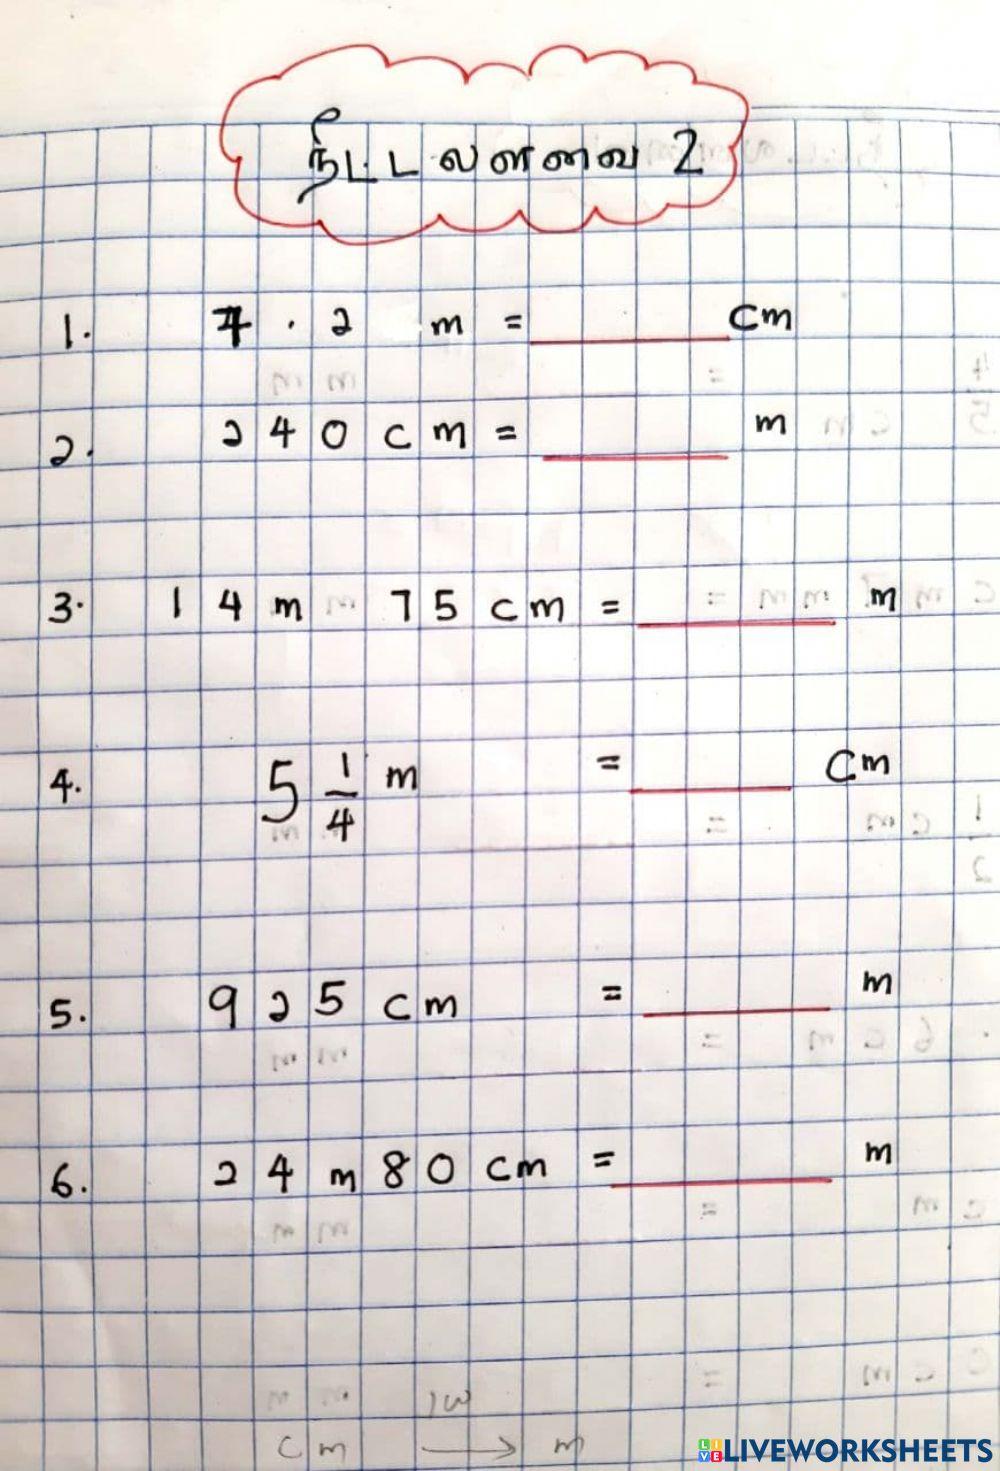 நீட்டலளவை 2
1. 7.2 m = ______ cm
2. 240 cm = ______ m
3. 14 m 75 cm = ______ m
4. 5 1/4 m = ______ cm
5. 925 cm = ______ m
6. 24 m 80 cm = ______ m
cm → m
LIVEWORKSHEETS